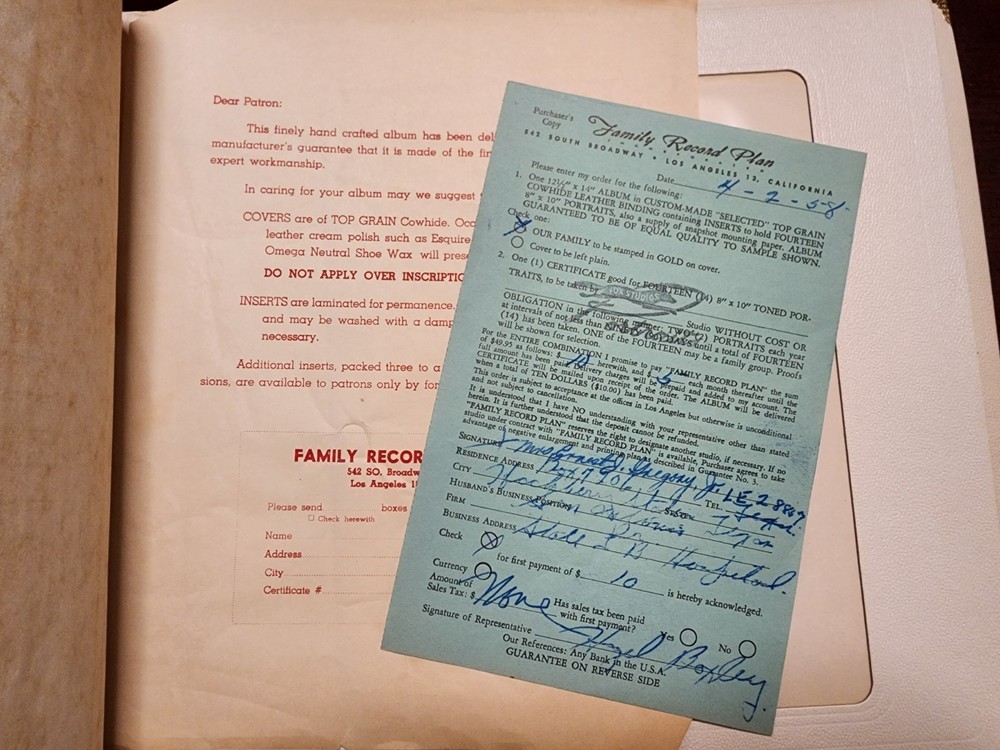 Dear Patron:
This finely hand crafted album has been del
manufacturer's guarantee that it is made of the fin
expert workmanship.
In caring for your album may we suggest
COVERS are of TOP GRAIN Cowhide. Occ
leather cream polish such as Esquire
Omega Neutral Shoe Wax will pres
DO NOT APPLY OVER INSCRIPTIO
INSERTS are laminated for permanence.
and may be washed with a damp
necessary.
Additional inserts, packed three to a
sions, are available to patrons only by for
FAMILY RECOR
542 SO. Broadw
Los Angeles 1
Please send boxes
Check herewith
Name
Address
City
Certificate #
Purchaser's
Copy
Family Record Plan
542 SOUTH BROADWAY • LOS ANGELES 13, CALIFORNIA
Date 4-2-58
Please enter my order for the following:
1. One 12½" x 14" ALBUM in CUSTOM-MADE "SELECTED" TOP GRAIN
COWHIDE LEATHER BINDING containing INSERTS to hold FOURTEEN
8" x 10" PORTRAITS, also a supply of snapshot mounting paper. ALBUM
GUARANTEED TO BE OF EQUAL QUALITY TO SAMPLE SHOWN.
Check one:
OUR FAMILY to be stamped in GOLD on cover.
Cover to be left plain.
2. One (1) CERTIFICATE good for FOURTEEN (14) 8" x 10" TONED POR-
TRAITS, to be taken by STUDIOS
Studio WITHOUT COST OR
OBLIGATION in the following manner: TWO (2) PORTRAITS each year
at intervals of not less than NINETY (90) DAYS until a total of FOURTEEN
(14) has been taken. ONE of the FOURTEEN may be a family group. Proofs
will be shown for selection.
For the ENTIRE COMBINATION I promise to pay "FAMILY RECORD PLAN" the sum
of $49.95 as follows: $ 10 herewith, and $ 5 each month thereafter until the
full amount has been paid. Delivery charges will be prepaid and added to my account. The
CERTIFICATE will be mailed upon receipt of the order. The ALBUM will be delivered
when a total of TEN DOLLARS ($10.00) has been paid.
This order is subject to acceptance at the offices in Los Angeles but otherwise is unconditional
and not subject to cancellation.
It is understood that I have NO understanding with your representative other than stated
herein. It is further understood that the deposit cannot be refunded.
"FAMILY RECORD PLAN" reserves the right to designate another studio, if necessary. If no
studio under contract with "FAMILY RECORD PLAN" is available, Purchaser agrees to take
advantage of negative enlargement and printing plan as described in Guarantee No. 3.
SIGNATURE Mrs Ernest J. Gregory, Jr.
RESIDENCE ADDRESS Box TEL. LE 2
CITY STATE
HUSBAND'S BUSINESS POSITION
FIRM
BUSINESS ADDRESS State
Check
for first payment of $ 10 is hereby acknowledged.
Currency
Amount of
Sales Tax: $ None Has sales tax been paid
with first payment? Yes No
Signature of Representative Hazel
Our References: Any Bank in the U.S.A.
GUARANTEE ON REVERSE SIDE